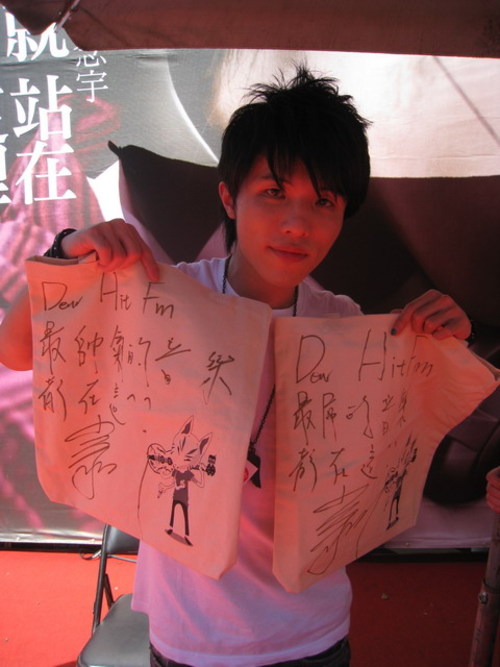 就站在
宇
Dear Hit Fm
最帥氣的音樂
都在這
Dear Hit Fm
最屌的音樂
都在這